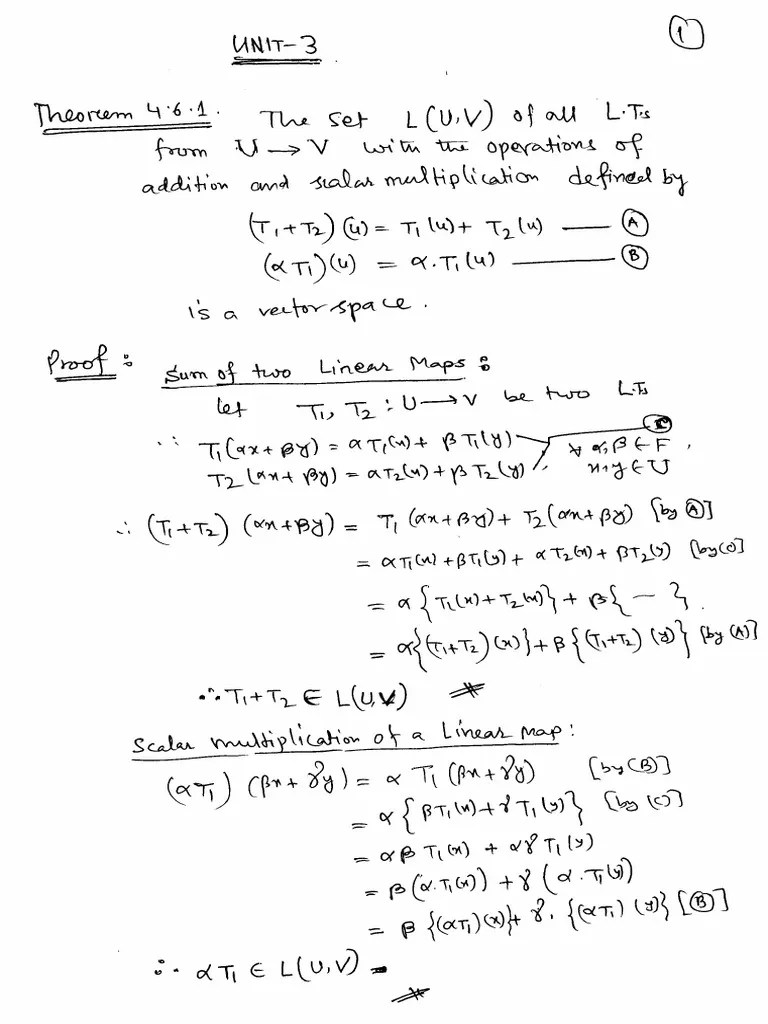 UNIT-3
1
Theorem 4.6.1. The set L(U,V) of all L.T.s
from U → V with the operations of
addition and scalar multiplication defined by
(T₁+T₂)(u) = T₁(u) + T₂(u) — (A)
(αT₁)(u) = α.T₁(u) — (B)
is a vector space.
Proof: Sum of two Linear Maps:
let T₁, T₂ : U → V be two L.Ts
∵ T₁(αx+βy) = αT₁(x) + βT₁(y)
T₂(αx+βy) = αT₂(x) + βT₂(y)
∀ α,β ∈ F,
x,y ∈ U
∴ (T₁+T₂)(αx+βy) = T₁(αx+βy) + T₂(αx+βy) [by (A)]
= αT₁(x) + βT₁(y) + αT₂(x) + βT₂(y) [by (C)]
= α{T₁(x)+T₂(x)} + β{ — }.
= α{(T₁+T₂)(x)} + β{(T₁+T₂)(y)} [by (A)]
∴ T₁+T₂ ∈ L(U,V)
Scalar multiplication of a Linear map:
(αT₁)(βx+γy) = α T₁(βx+γy) [by (B)]
= α{βT₁(x)+γT₁(y)} [by (C)]
= αβ T₁(x) + αγ T₁(y)
= β(α.T₁(x)) + γ(α.T₁(y)
= β{(αT₁)(x)} + γ.{(αT₁)(y)} [(B)]
∴ αT₁ ∈ L(U,V)